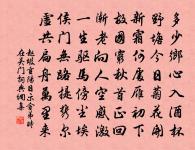 多少鄉心入酒杯
野塘今日菊花開
新霜何處雁初下
故國窮秋首正回
漸老向人空感激
一生驅馬傍塵埃
侯門無路提攜爾
虛共扁舟萬里來
趙嘏重陽日示舍弟時
在吳門